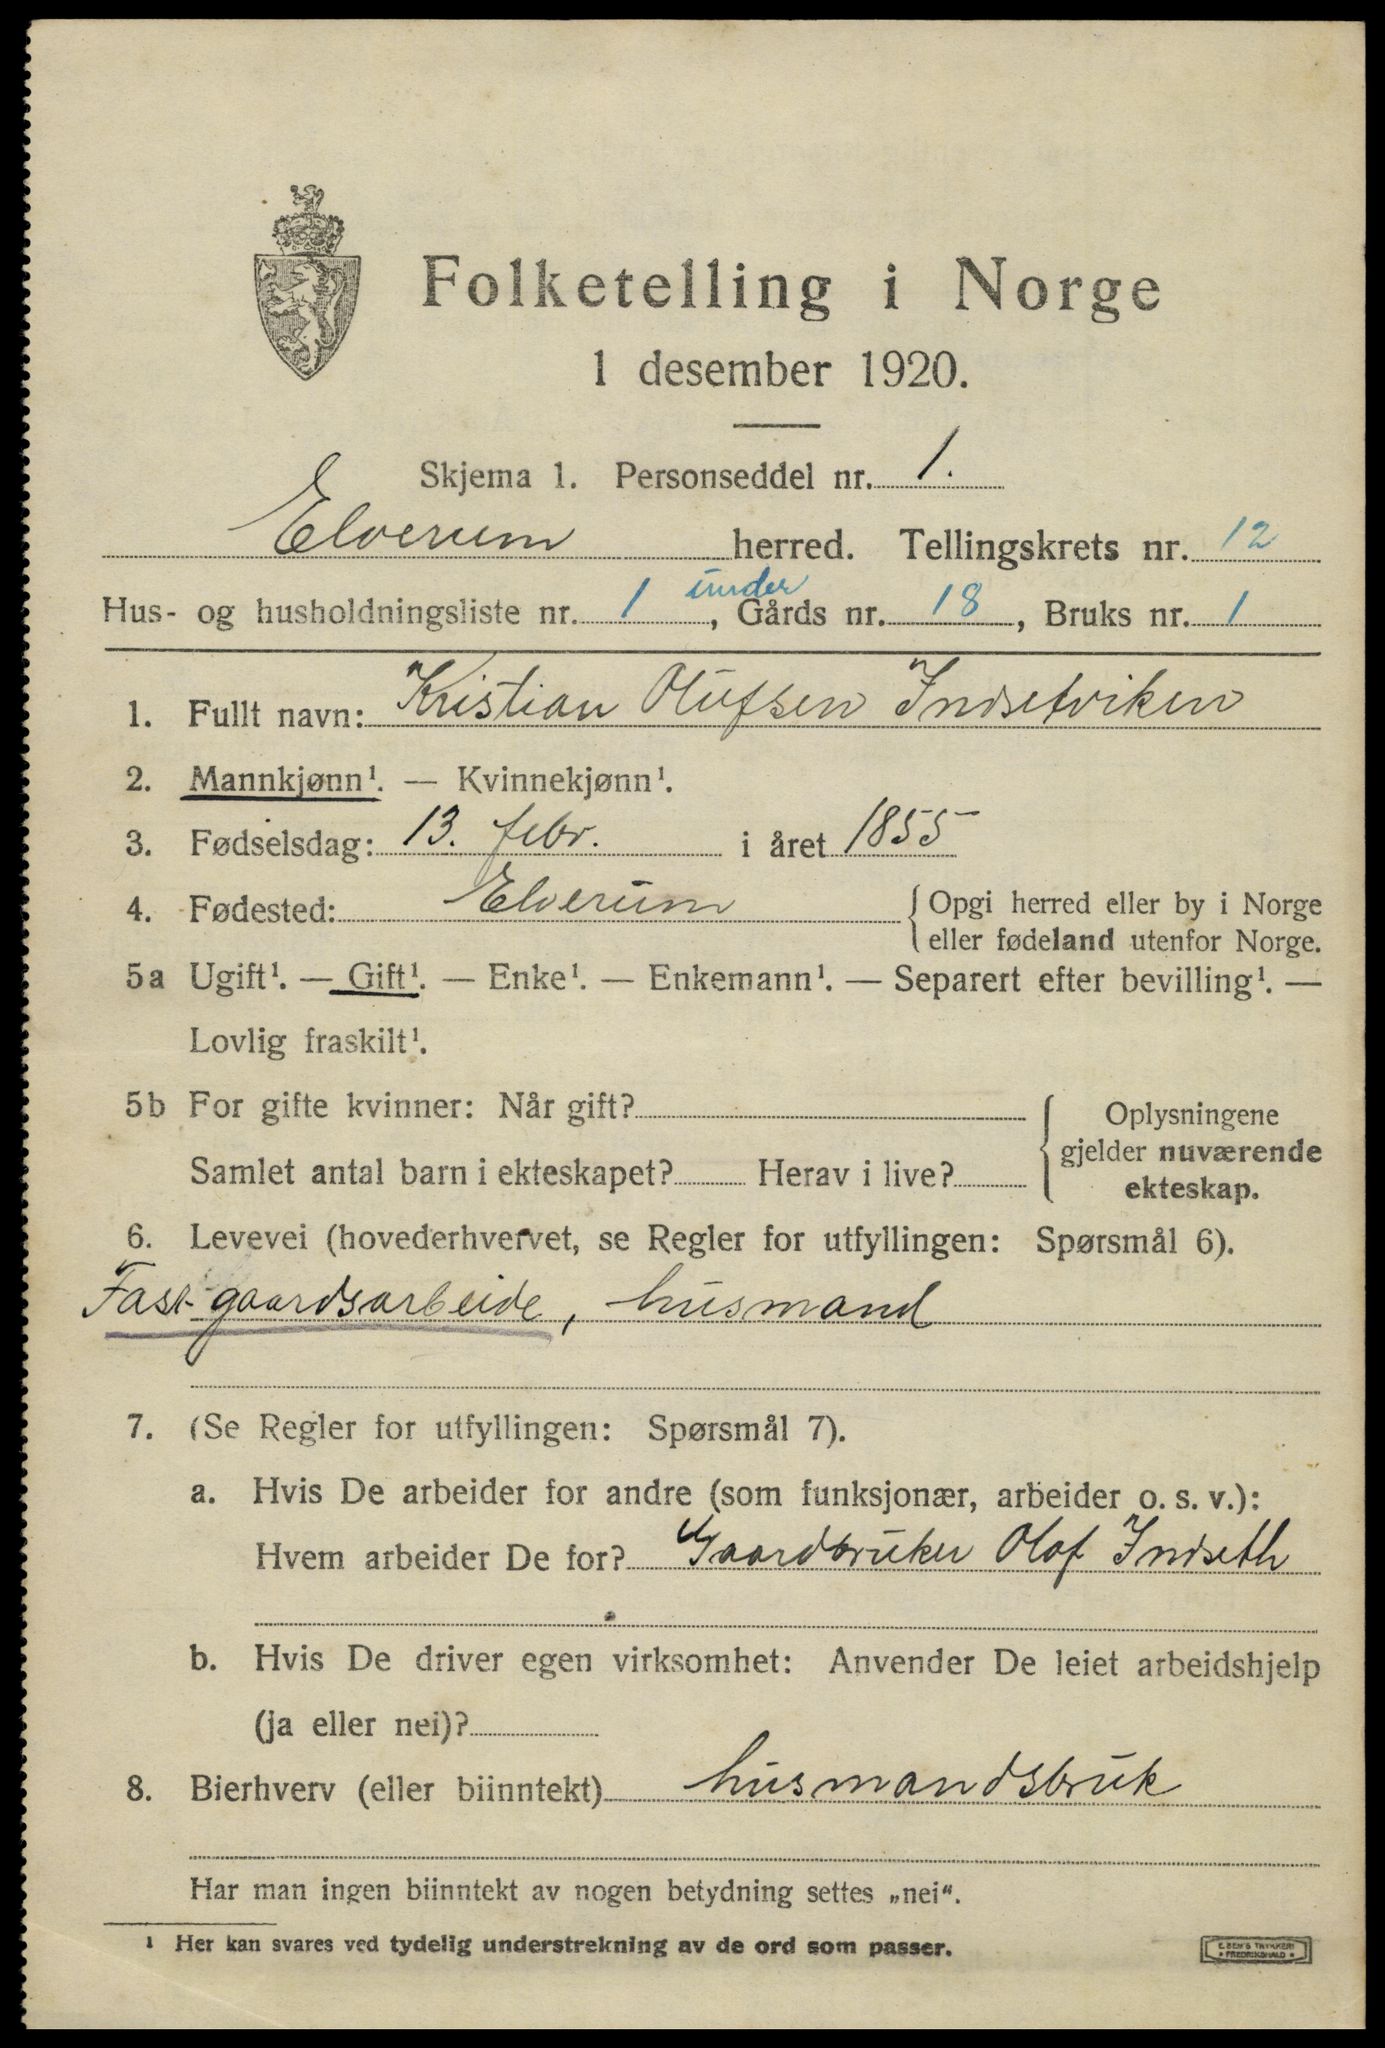 Folketelling i Norge
1 desember 1920.
Skjema 1. Personseddel nr. 1.
Elverum herred. Tellingskrets nr. 12
Hus- og husholdningsliste nr. 1 under, Gårds nr. 18, Bruks nr. 1
1. Fullt navn: Kristian Olufsen Indsetviken
2. Mannkjønn¹. — Kvinnekjønn¹.
3. Fødselsdag: 13. febr. i året 1855
4. Fødested: Elverum { Opgi herred eller by i Norge
eller fødeland utenfor Norge.
5a Ugift¹. — Gift¹. — Enke¹. — Enkemann¹. — Separert efter bevilling¹. —
Lovlig fraskilt¹.
5b For gifte kvinner: Når gift? { Oplysningene
gjelder nuværende
Samlet antal barn i ekteskapet? Herav i live?
ekteskap.
6. Levevei (hovederhvervet, se Regler for utfyllingen: Spørsmål 6).
Fast gaardsarbeide, husmand
7. (Se Regler for utfyllingen: Spørsmål 7).
a. Hvis De arbeider for andre (som funksjonær, arbeider o. s. v.):
Hvem arbeider De for? Gaardbruker Olof Indseth
b. Hvis De driver egen virksomhet: Anvender De leiet arbeidshjelp
(ja eller nei)?
8. Bierhverv (eller biinntekt) husmandsbruk
Har man ingen biinntekt av nogen betydning settes „nei“.
¹ Her kan svares ved tydelig understrekning av de ord som passer.
E. SEM'S TRYKKERI
• FREDRIKSHALD •